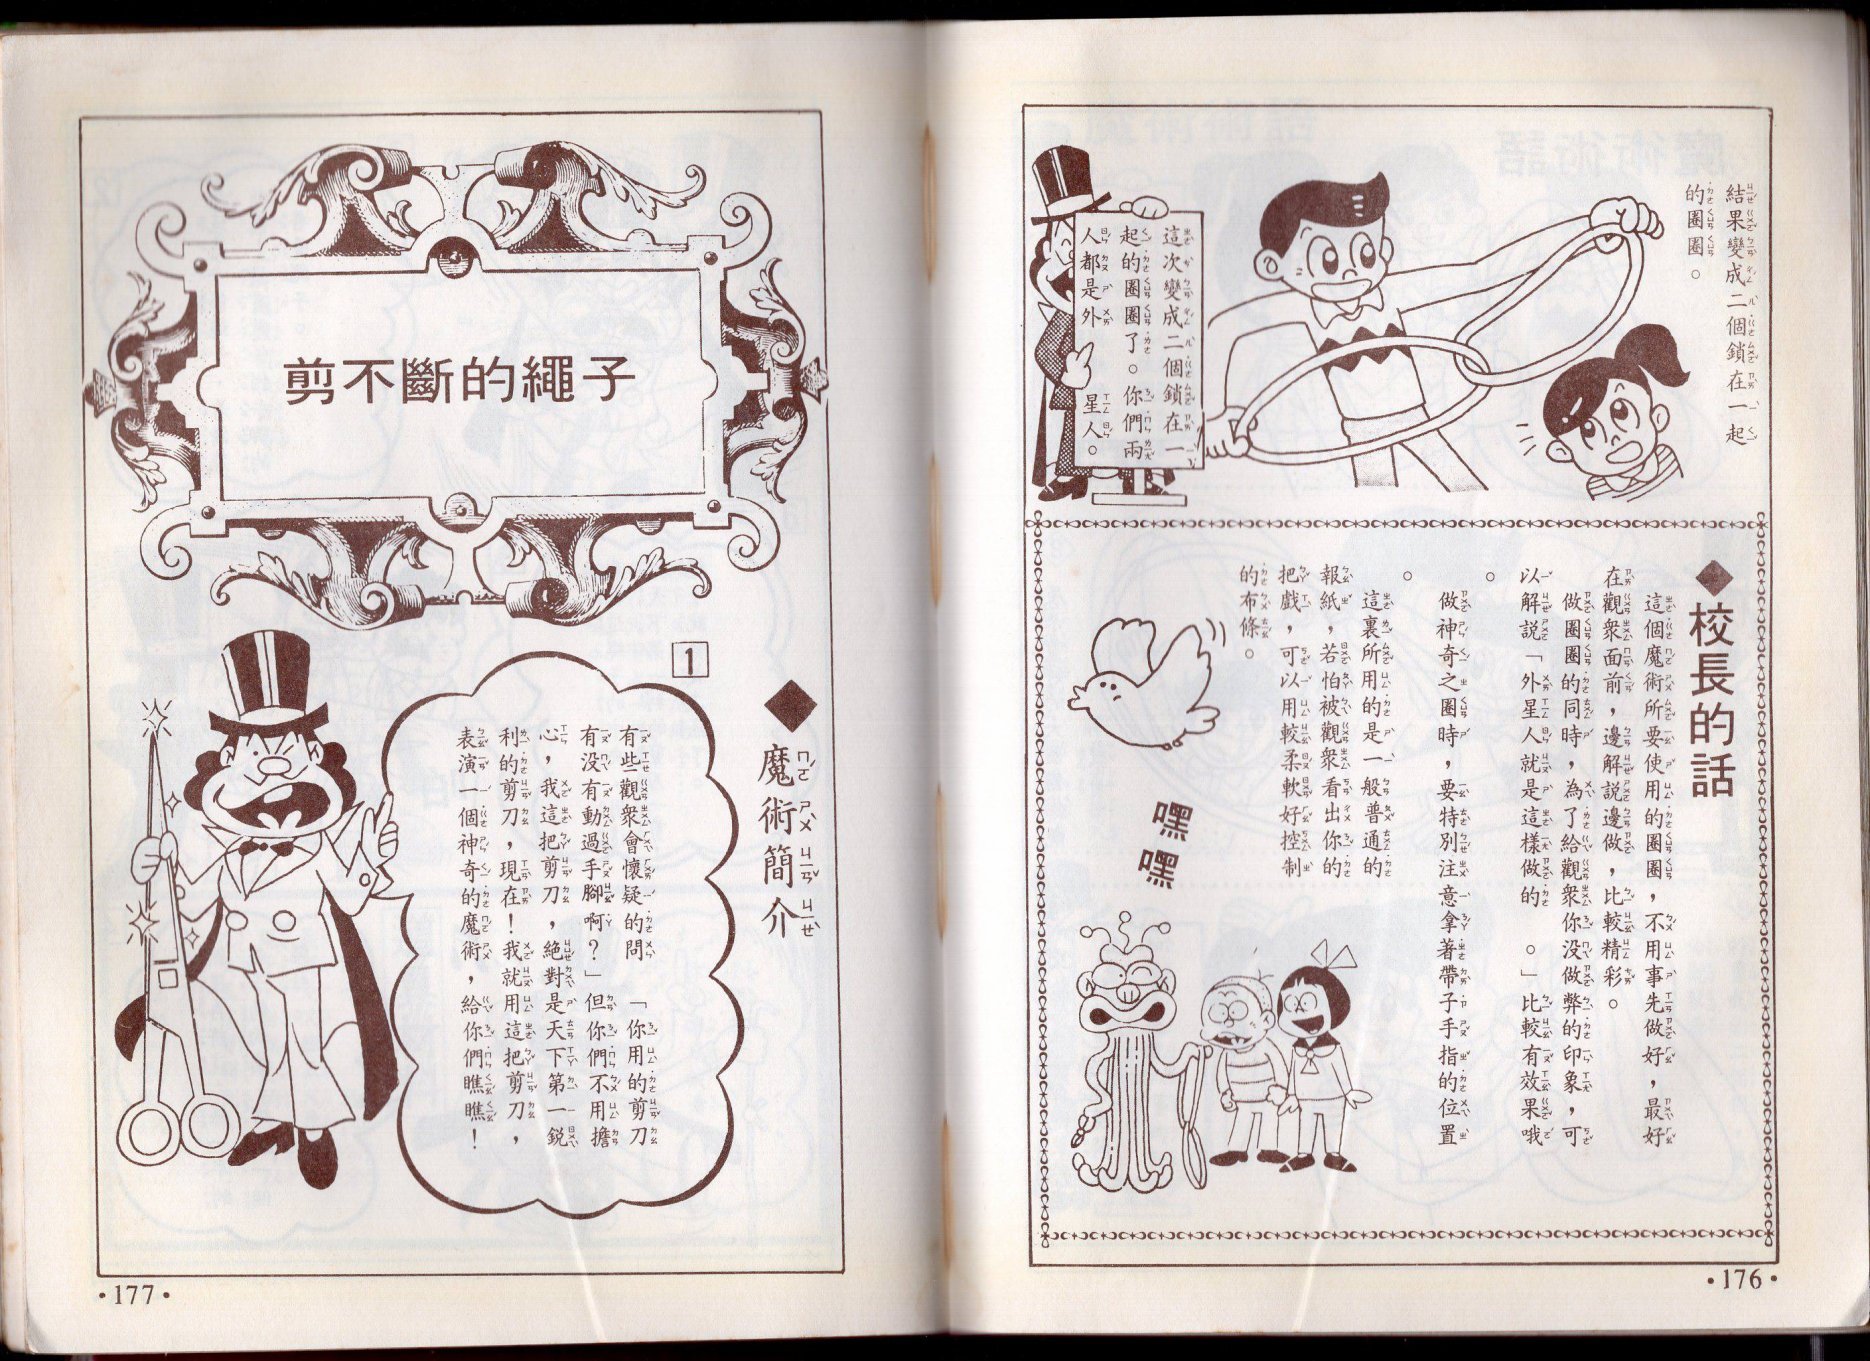 結果變成二個鎖在一起
的圈圈。
這次變成二個鎖在一
起的圈圈了。你們兩
人都是外　星人。
◆校長的話
這個魔術所要使用的圈圈，不用事先做好，最好
在觀衆面前，邊解説邊做，比較精彩。
做圈圈的同時，為了給觀衆你没做弊的印象，可
以解説「外星人就是這樣做的　。」比較有效果哦
。
做神奇之圈時，要特別注意拿著帶子手指的位置
。
這裏所用的是一般普通的
報紙，若怕被觀衆看出你的
把戲，可以用較柔軟好控制
的布條。
嘿
嘿
·176·
剪不斷的繩子
◆魔術簡介
1
有些觀衆會懷疑的問　「你用的剪刀
有没有動過手腳啊？」但你們不用擔
心，我這把剪刀，絕對是天下第一鋭
利的剪刀，現在！我就用這把剪刀，
表演一個神奇的魔術，給你們瞧瞧！
·177·